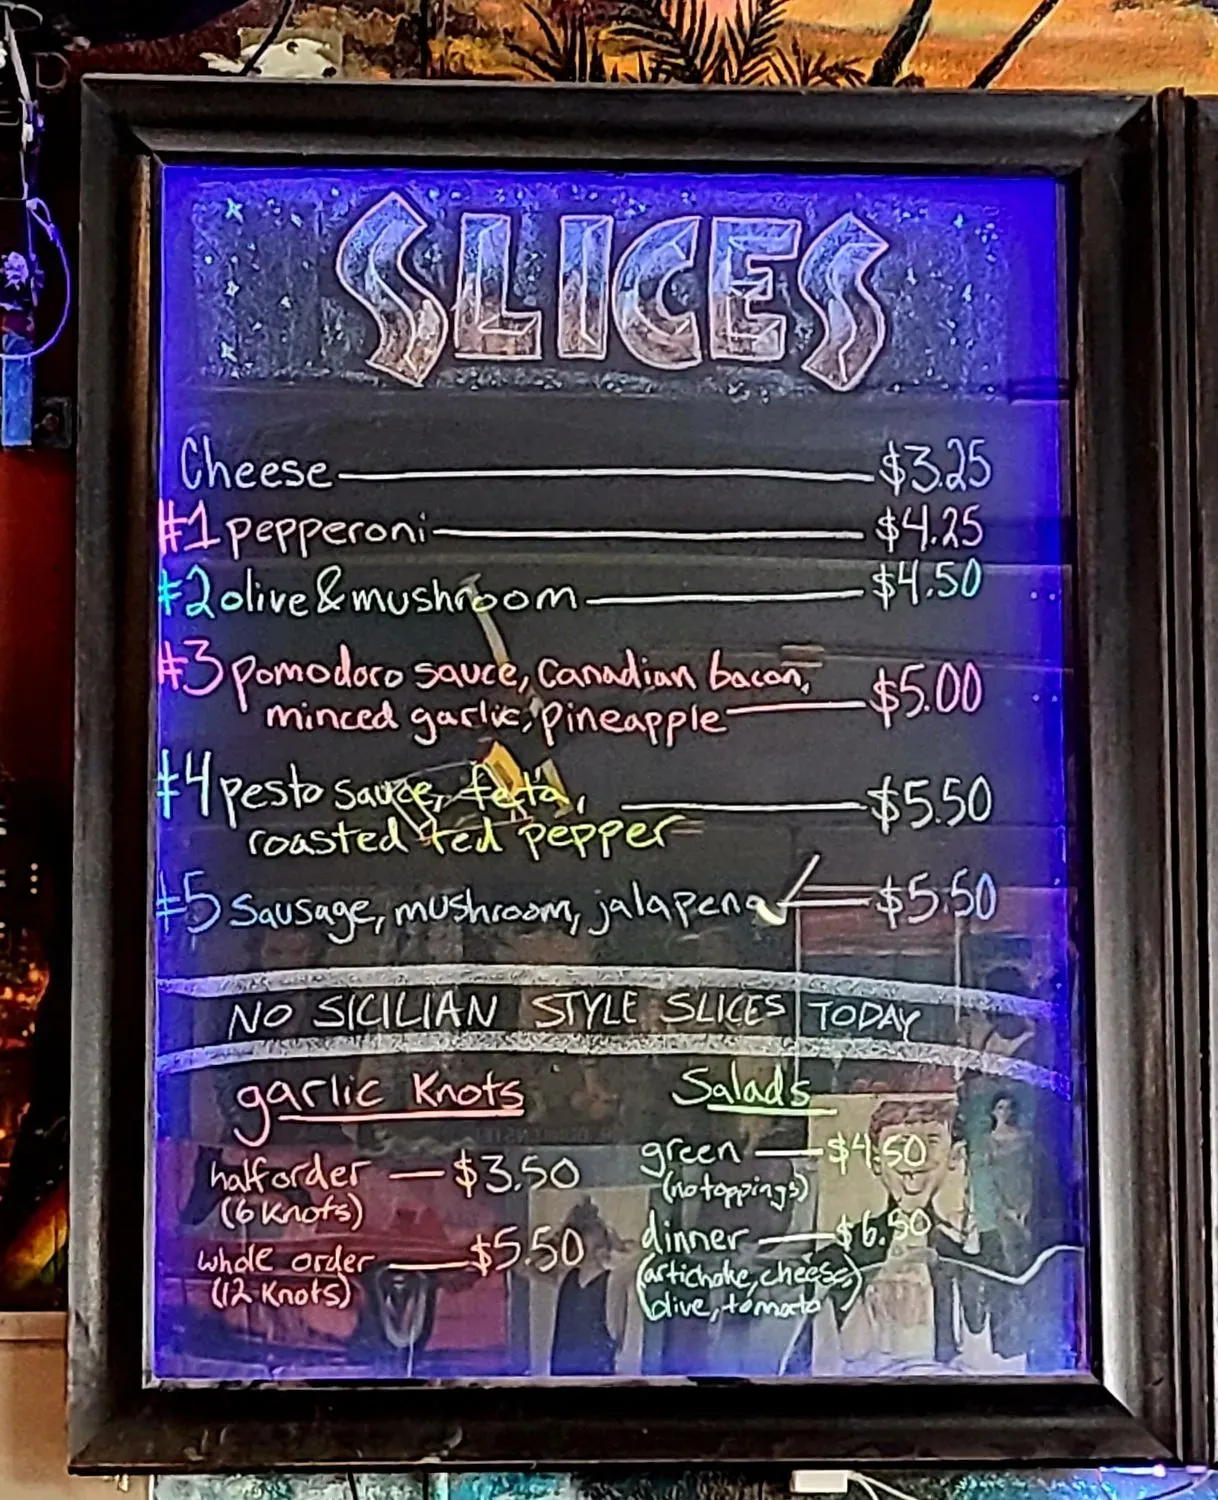 SLICES
Cheese $3.25
#1 pepperoni $4.25
#2 olive & mushroom $4.50
#3 pomodoro sauce, Canadian bacon,
minced garlic, pineapple $5.00
#4 pesto sauce, feta, $5.50
roasted red pepper
#5 Sausage, mushroom, jalapeno $5.50
NO SICILIAN STYLE SLICES TODAY
garlic Knots
half order — $3.50
(6 Knots)
whole order — $5.50
(12 Knots)
Salads
green — $4.50
(no toppings)
dinner — $6.50
(artichoke, cheese,
olive, tomato)